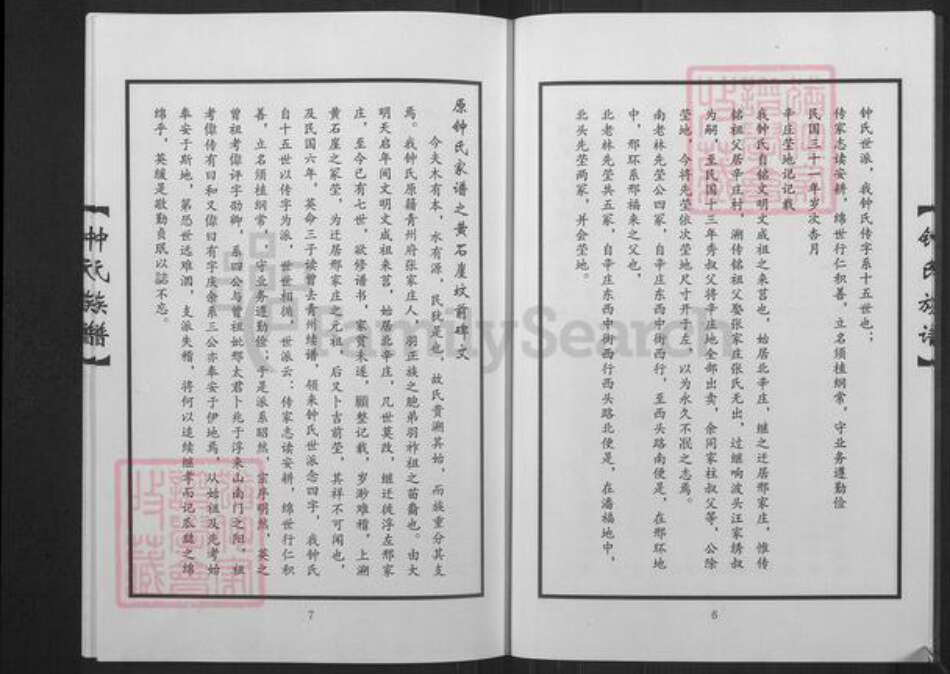 【钟氏族谱】
钟氏世派，我钟氏传字系十五世也；
传家志读安耕，绵世行仁积善，立名须植纲常，守业务遵勤俭
民国三十一年岁次杏月
辛庄茔地记记载
我钟氏自铭文明文成祖之来莒也，始居北辛庄，继之迁居邢家庄，惟传
铭祖父居辛庄村，溯传铭祖父娶张家庄张氏无出，过继响波头汪家绣叔
为嗣，至民国十三年秀叔父将辛庄地全部出卖，余同家柱叔父等，公除
茔地，今将先茔依次茔地尺寸开于左，以为永久不泯之志焉。
南老林先茔公四冢，自辛庄东西中街西行，至西头路南便是，在邢环地
中，邢环系邢福来之父也，
北老林先茔共五冢，自辛庄东西中街西行西头路北便是，在潘福地中，
北头先茔两冢，并会茔地。
6
原钟氏家谱之黄石崖坟前碑文
今夫木有本，水有源，民犹是也，故氏贵溯其始，而族重分其支
焉。我钟氏原籍青州府张家庄人，羽正族之胞弟羽祚祖之苗裔也。由大
明天启年间文明文成祖来莒，始居北辛庄，几世莫改，继迁徙浮左邢家
庄，至今已有七世，欲修谱书，家贫未遂，顾整记载，岁渺难稽，上溯
黄石崖之冢茔，为迁居邢家庄之元祖，后又卜吉前茔，其祥不可闻也，
及民国六年，英命三子读曾去青州续谱，领来钟氏世派念四字，我钟氏
自十五世以传字为派，世世相循，世派云：传家志读安耕，绵世行仁积
善，立名须植纲常，守业务遵勤俭；于是派系昭然，宗序明然，英之
曾祖考偉评字劭卿，系四公与曾祖妣邢太君卜兆于浮来山南门之阳，祖
考偉传有曰和又偉曰有字庆余系三公亦奉安于伊地焉，从始祖及先考始
奉安于斯地，第恐世远难溯，支派失稽，将何以追续继孝而记瓜瓞之绵
绵乎，英缓是敬勤贞珉以誌不忘。
7
【钟氏族谱】
FamilySearch